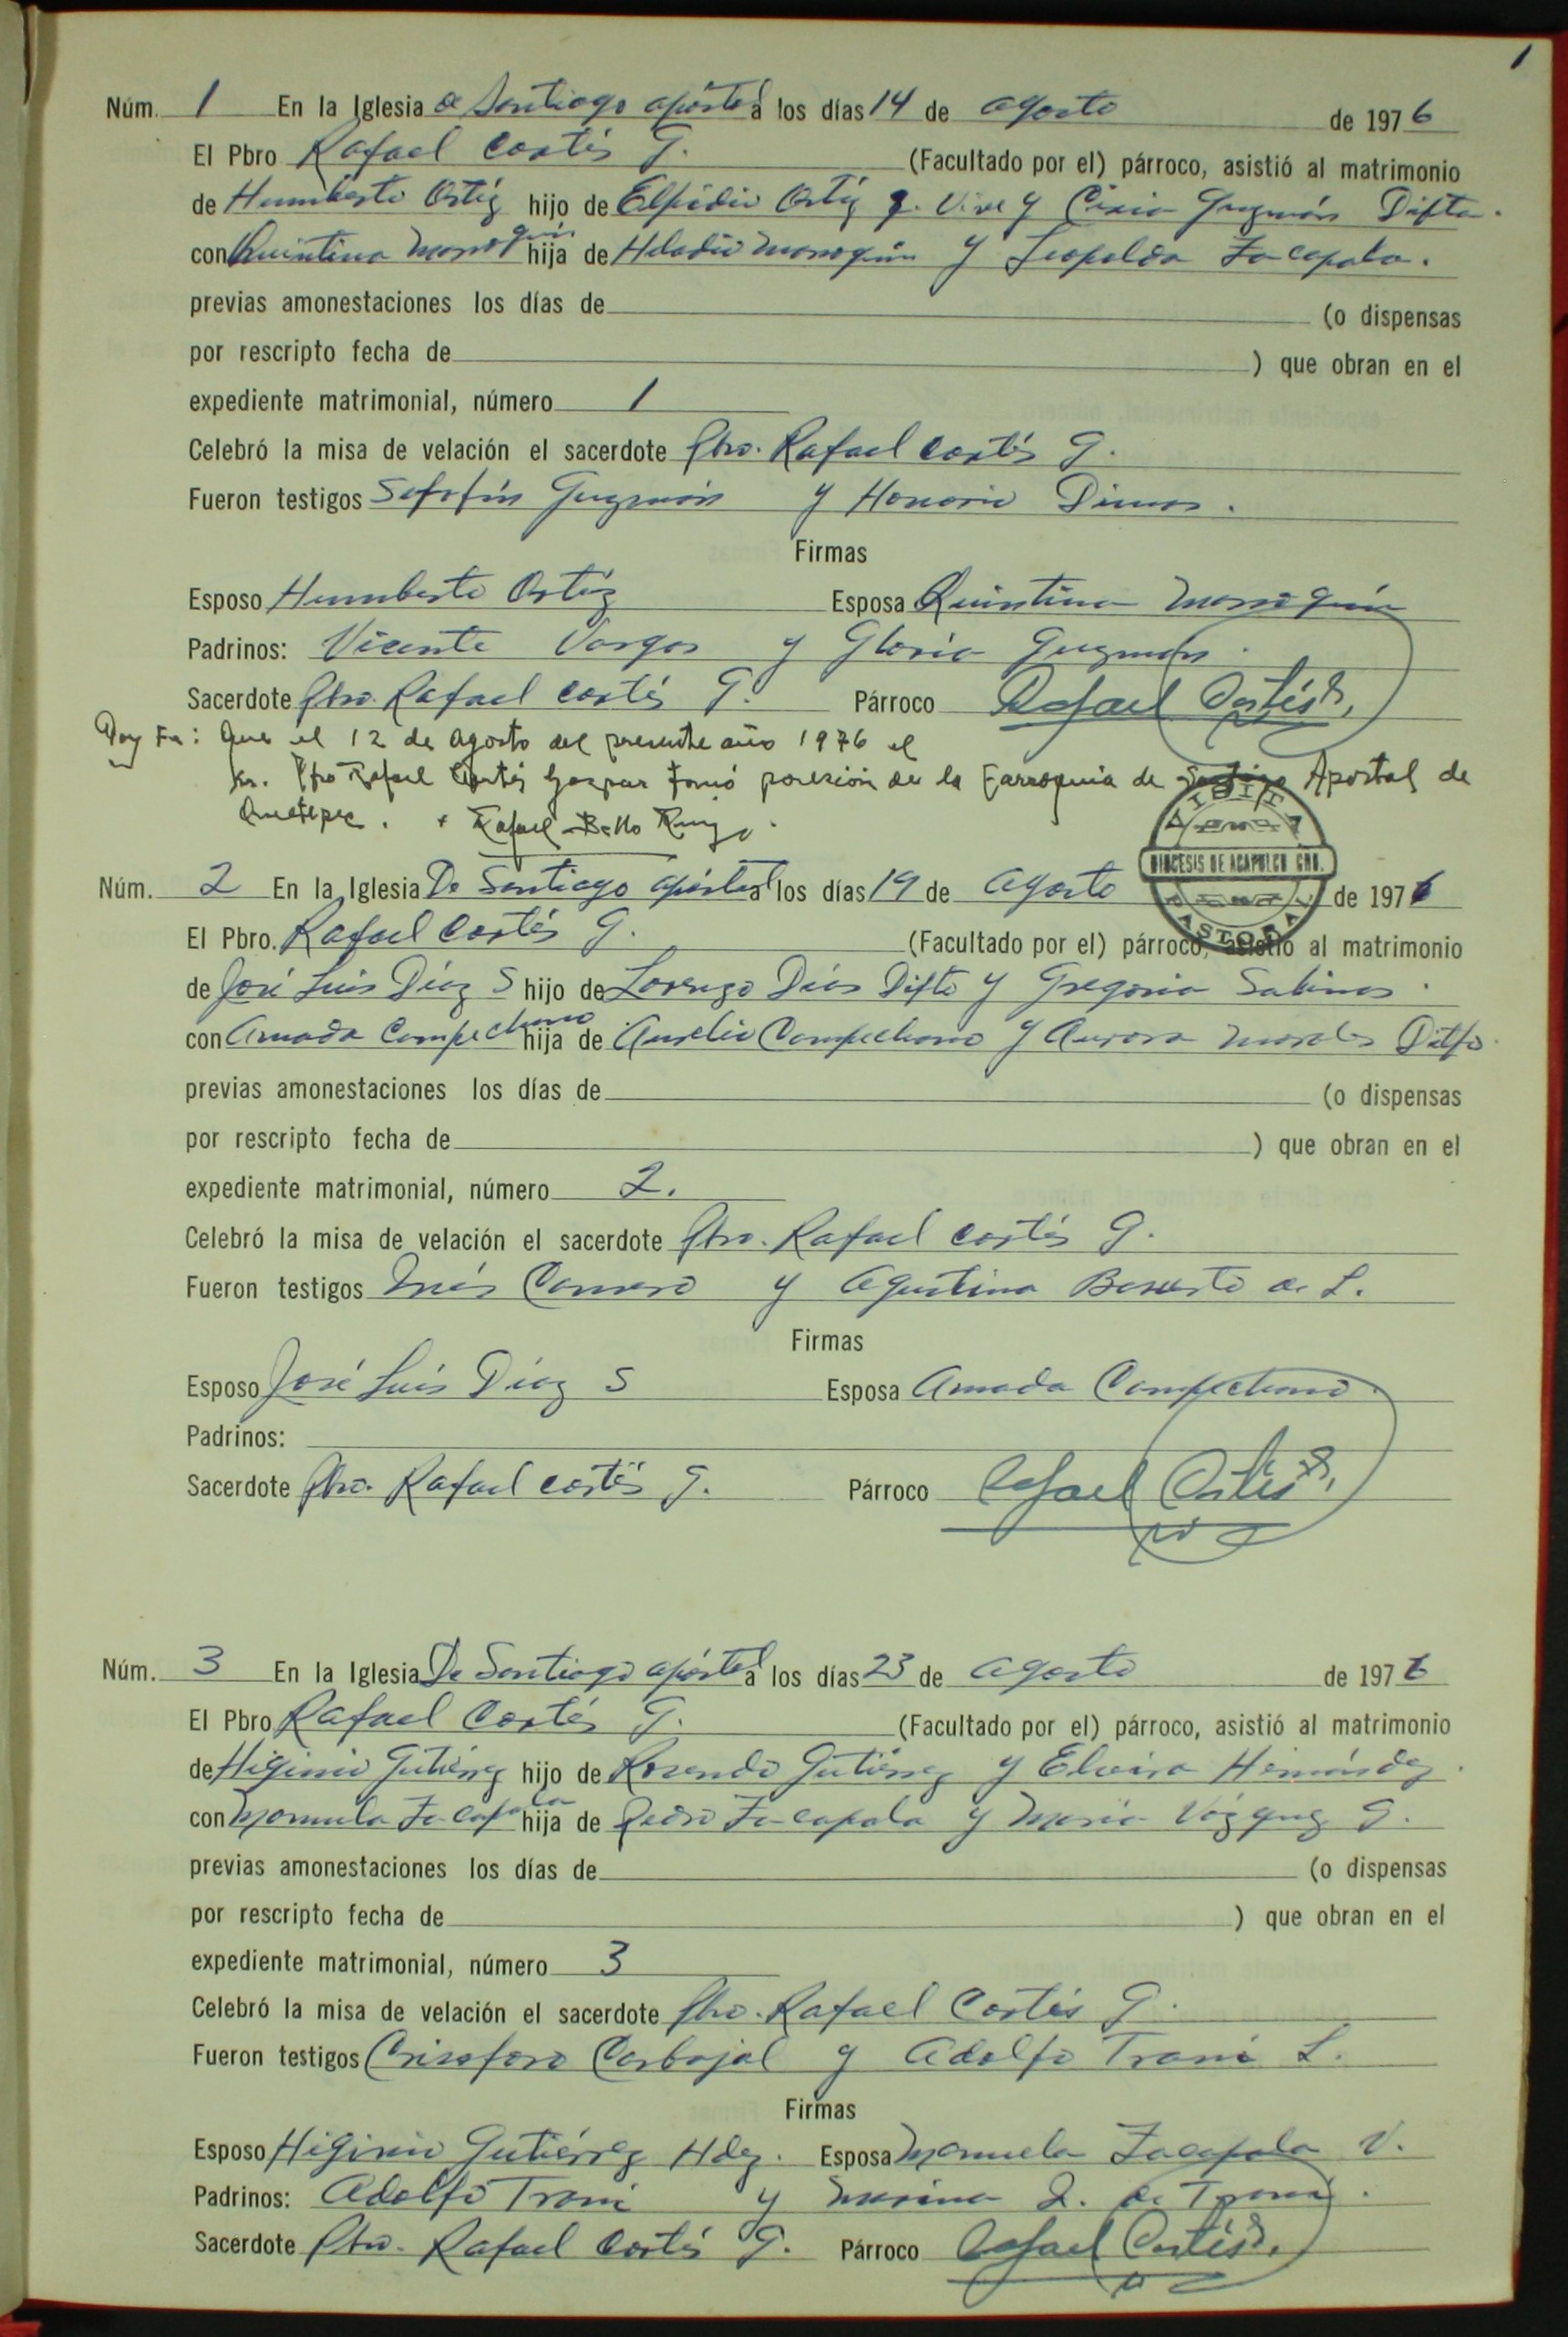 1
Núm. 1 En la Iglesia de Santiago apóstol a los días 14 de agosto de 1976
El Pbro Rafael Cortés G. (Facultado por el) párroco, asistió al matrimonio
de Humberto Ortíz hijo de Elpidio Ortíz q. vive y Guzmán Difta.
con Quintina Marroquín hija de Heladio Marroquín y Leopolda Zacapala.
previas amonestaciones los días de (o dispensas
por rescripto fecha de ) que obran en el
expediente matrimonial, número 1
Celebró la misa de velación el sacerdote Pbro. Rafael Cortés G.
Fueron testigos Guzmán y Honorio
Firmas
Esposo Humberto Ortíz Esposa Quintina Marroquín
Padrinos: Vicente Vargas y Gloria Guzmán.
Sacerdote Pbro. Rafael Cortés G. Párroco Rafael Cortés G.
Doy Fe: Que el 12 de agosto del presente año 1976 el
Sr. Pbro Rafael Cortés Gaspar tomó posesión de la Parroquia de Santiago Apostol de
+ Rafael Bello Ruiz
VISITA
DIOCESIS DE ACAPULCO GRO.
PASTORAL
Núm. 2 En la Iglesia De Santiago apóstol a los días 19 de agosto de 1976
El Pbro. Rafael Cortés G. (Facultado por el) párroco, asistió al matrimonio
de José Luis Díaz S hijo de Lorenzo Días Difto y Gregoria Salinas.
con Amada Campechano hija de Aurelio Campechano y Aurora Morales
previas amonestaciones los días de (o dispensas
por rescripto fecha de ) que obran en el
expediente matrimonial, número 2.
Celebró la misa de velación el sacerdote Pbro. Rafael Cortés G.
Fueron testigos Inés y Agustina de L.
Firmas
Esposo José Luis Díaz S Esposa Amada Campechano.
Padrinos:
Sacerdote Pbro. Rafael Cortés G. Párroco Rafael Cortés G.
Núm. 3 En la Iglesia De Santiago apóstol a los días 23 de agosto de 1976
El Pbro Rafael Cortés G. (Facultado por el) párroco, asistió al matrimonio
de Higinio Gutiérrez hijo de Rosendo Gutiérrez y Elvira Hernández.
con Manuela Zacapala hija de Pedro Zacapala y María Vázquez G.
previas amonestaciones los días de (o dispensas
por rescripto fecha de ) que obran en el
expediente matrimonial, número 3
Celebró la misa de velación el sacerdote Pbro. Rafael Cortés G.
Fueron testigos Crisoforo Carbajal y Adolfo Trani L.
Firmas
Esposo Higinio Gutiérrez Hdez. Esposa Manuela Zacapala V.
Padrinos: Adolfo Trani y Marina de Trani.
Sacerdote Pbro. Rafael Cortés G. Párroco Rafael Cortés G.